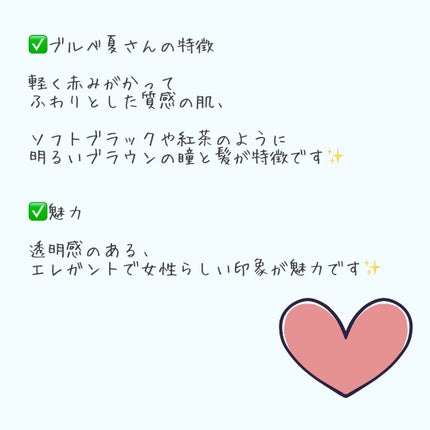 ✅ブルベ夏さんの特徴
軽く赤みがかって
ふわりとした質感の肌、
ソフトブラックや紅茶のように
明るいブラウンの瞳と髪が特徴です✨
✅魅力
透明感のある、
エレガントで女性らしい印象が魅力です✨